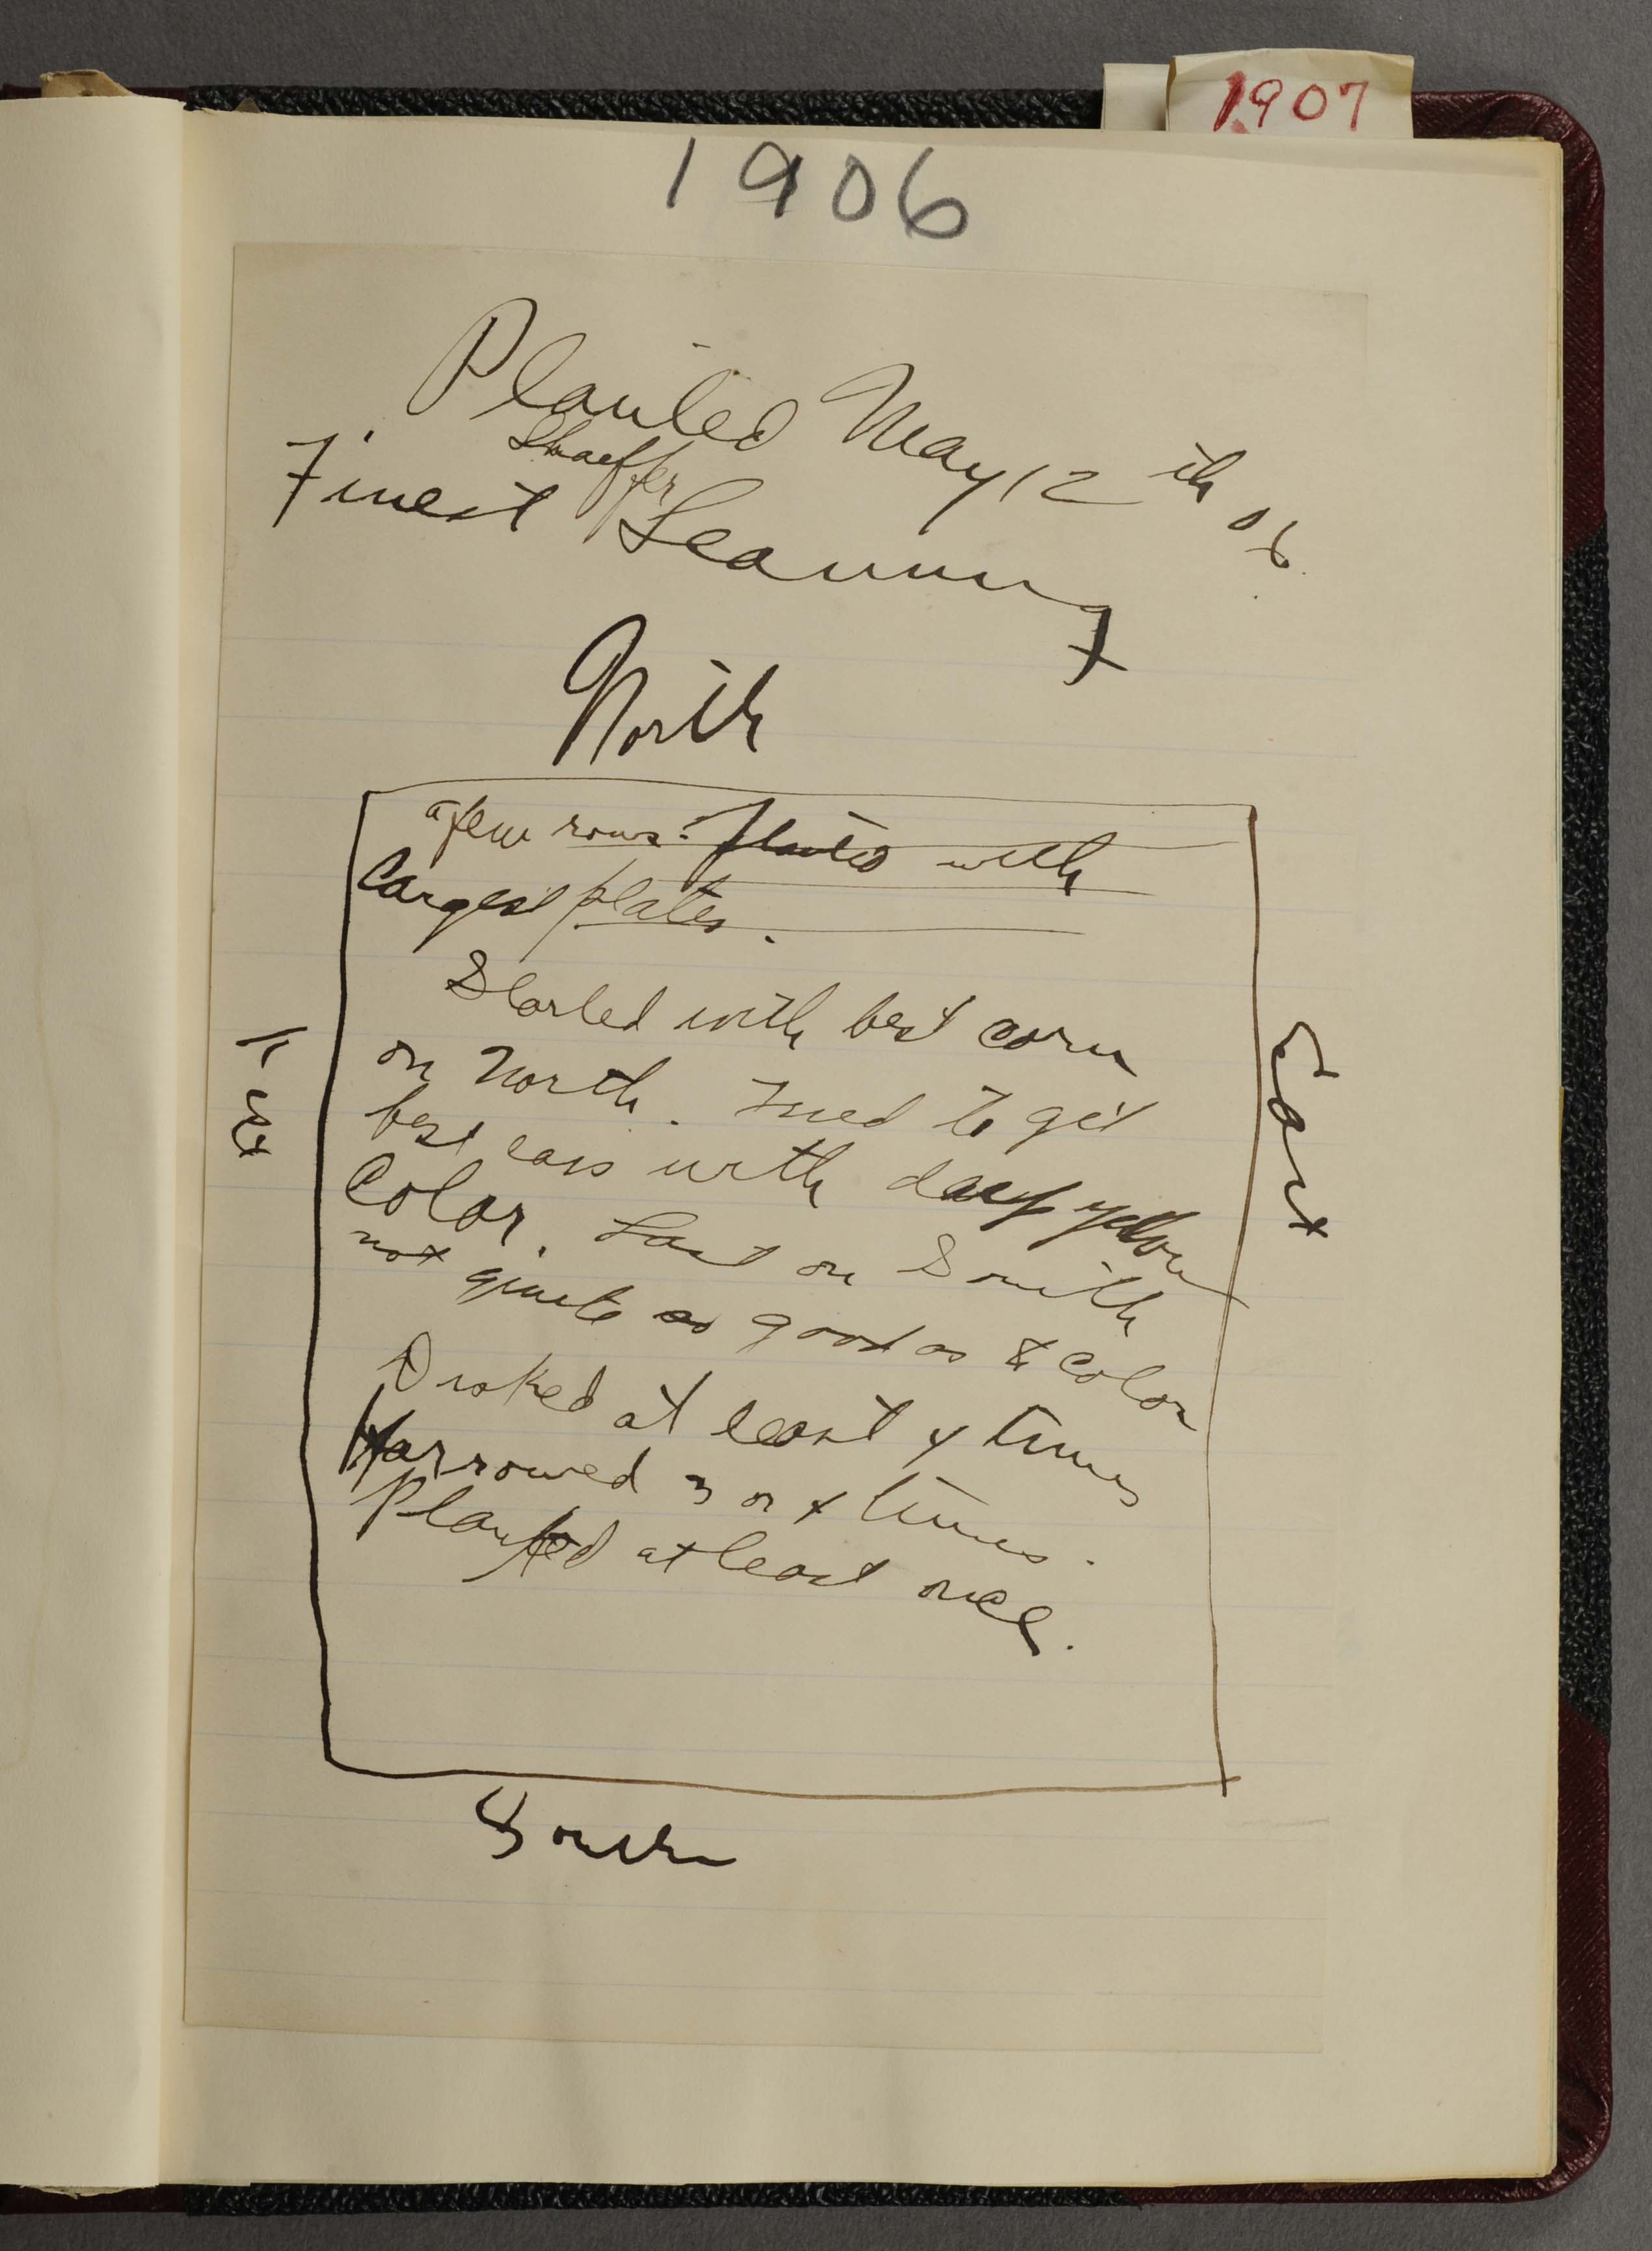 1907
1906
Planted May 12th 06.
Shaeffer
Finest Leaming
North
a few rows: planted with
largest plates.
Started with best corn
on North. Tried to get
best ears with deep yellow
Color. Last on South
not quite so good as & color
Disked at least 4 times
Harrowed 3 or 4 times.
Planked at least once.
West
East
South